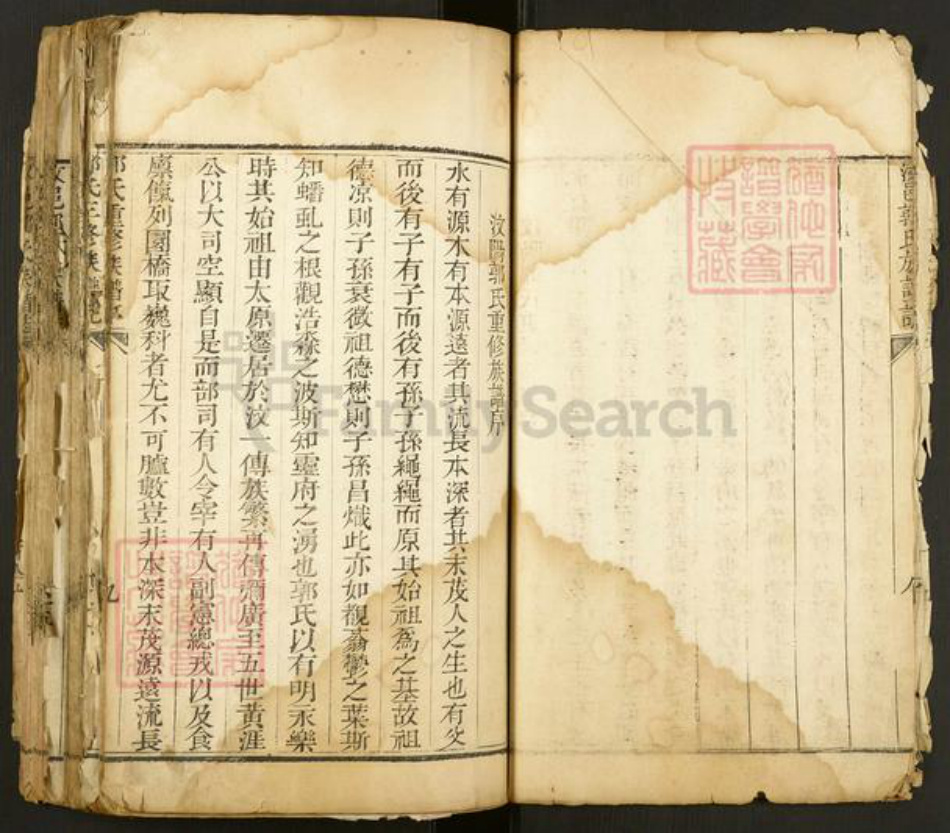 汶陽郭氏重修族譜序
水有源木有本源遠者其流長本深者其末茂人之生也有父
而後有子有子而後有孫子孫繩繩而原其始祖為之基故祖
德凉則子孫衰微祖德懋則子孫昌熾此亦如觀蓊鬱之葉斯
知蟠虬之根觀浩淼之波斯知靈府之湧也郭氏以有明永樂
時其始祖由太原遷居於汶一傳族繁再傳彌廣至五世黃涯
公以大司空顯自是而部司有人令宰有人副憲總戎以及食
廩餼列圜橋取巍科者尤不可臚數豈非本深末茂源遠流長
郭氏重修族譜序
九
郭氏三修族譜
FamilySearch